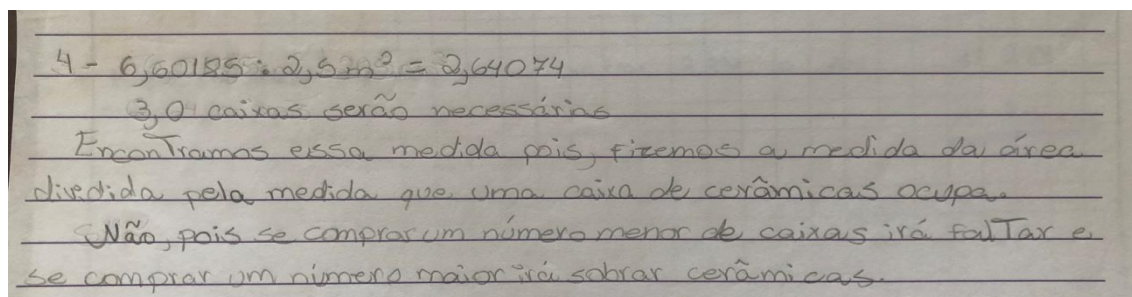 4 - 6,60185 : 2,5 m² = 2,64074
3,0 caixas serão necessárias
Encontramos essa medida pois, fizemos a medida da área
divedida pela medida que uma caixa de cerâmicas ocupa.
Não, pois se comprar um número menor de caixas irá faltar e
se comprar um número maior irá sobrar cerâmicas.